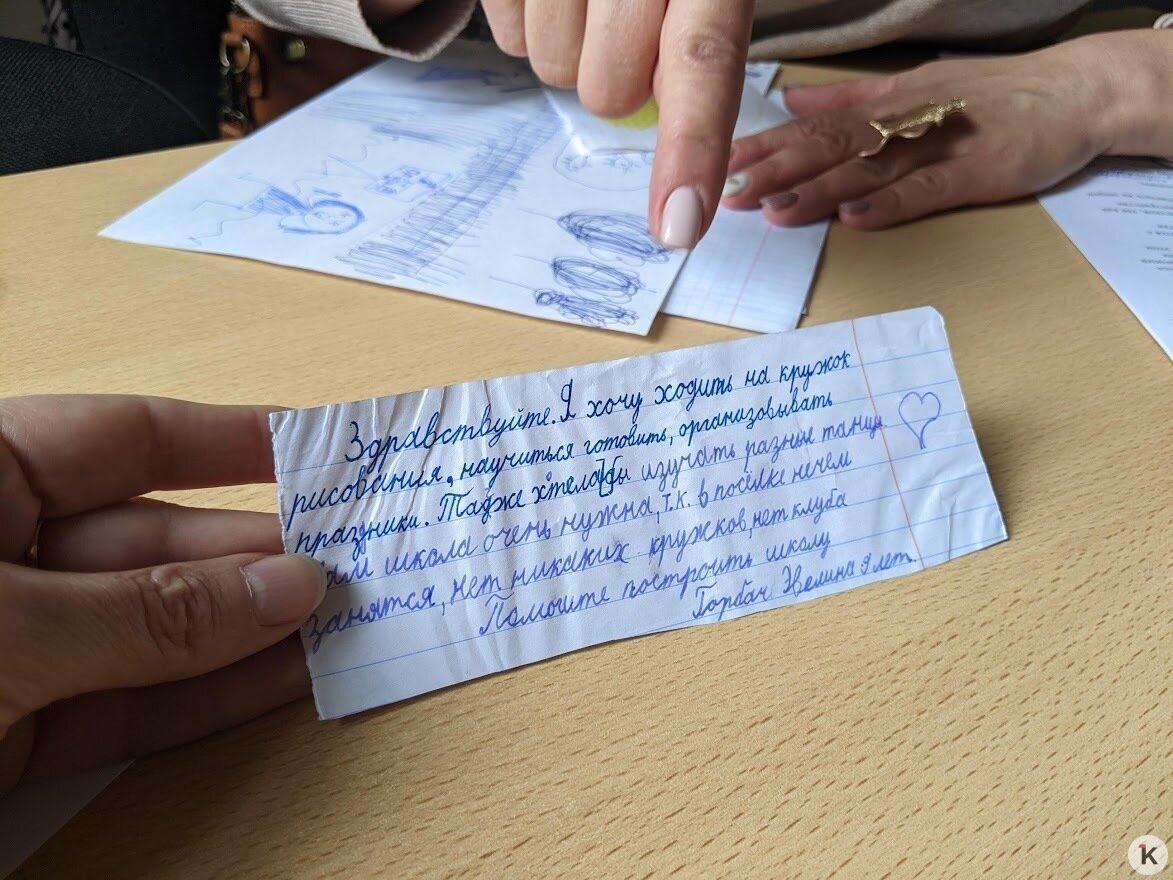 Здравствуйте. Я хочу ходить на кружок
рисования, научиться готовить, организовывать
праздники. Также хтела бы изучать разные танцы
Нам школа очень нужна, т.к. в посёлке нечем
занятся, нет никаких кружков, нет клуба
Помоите построить школу
Горбач Эвелина 9 лет.
K